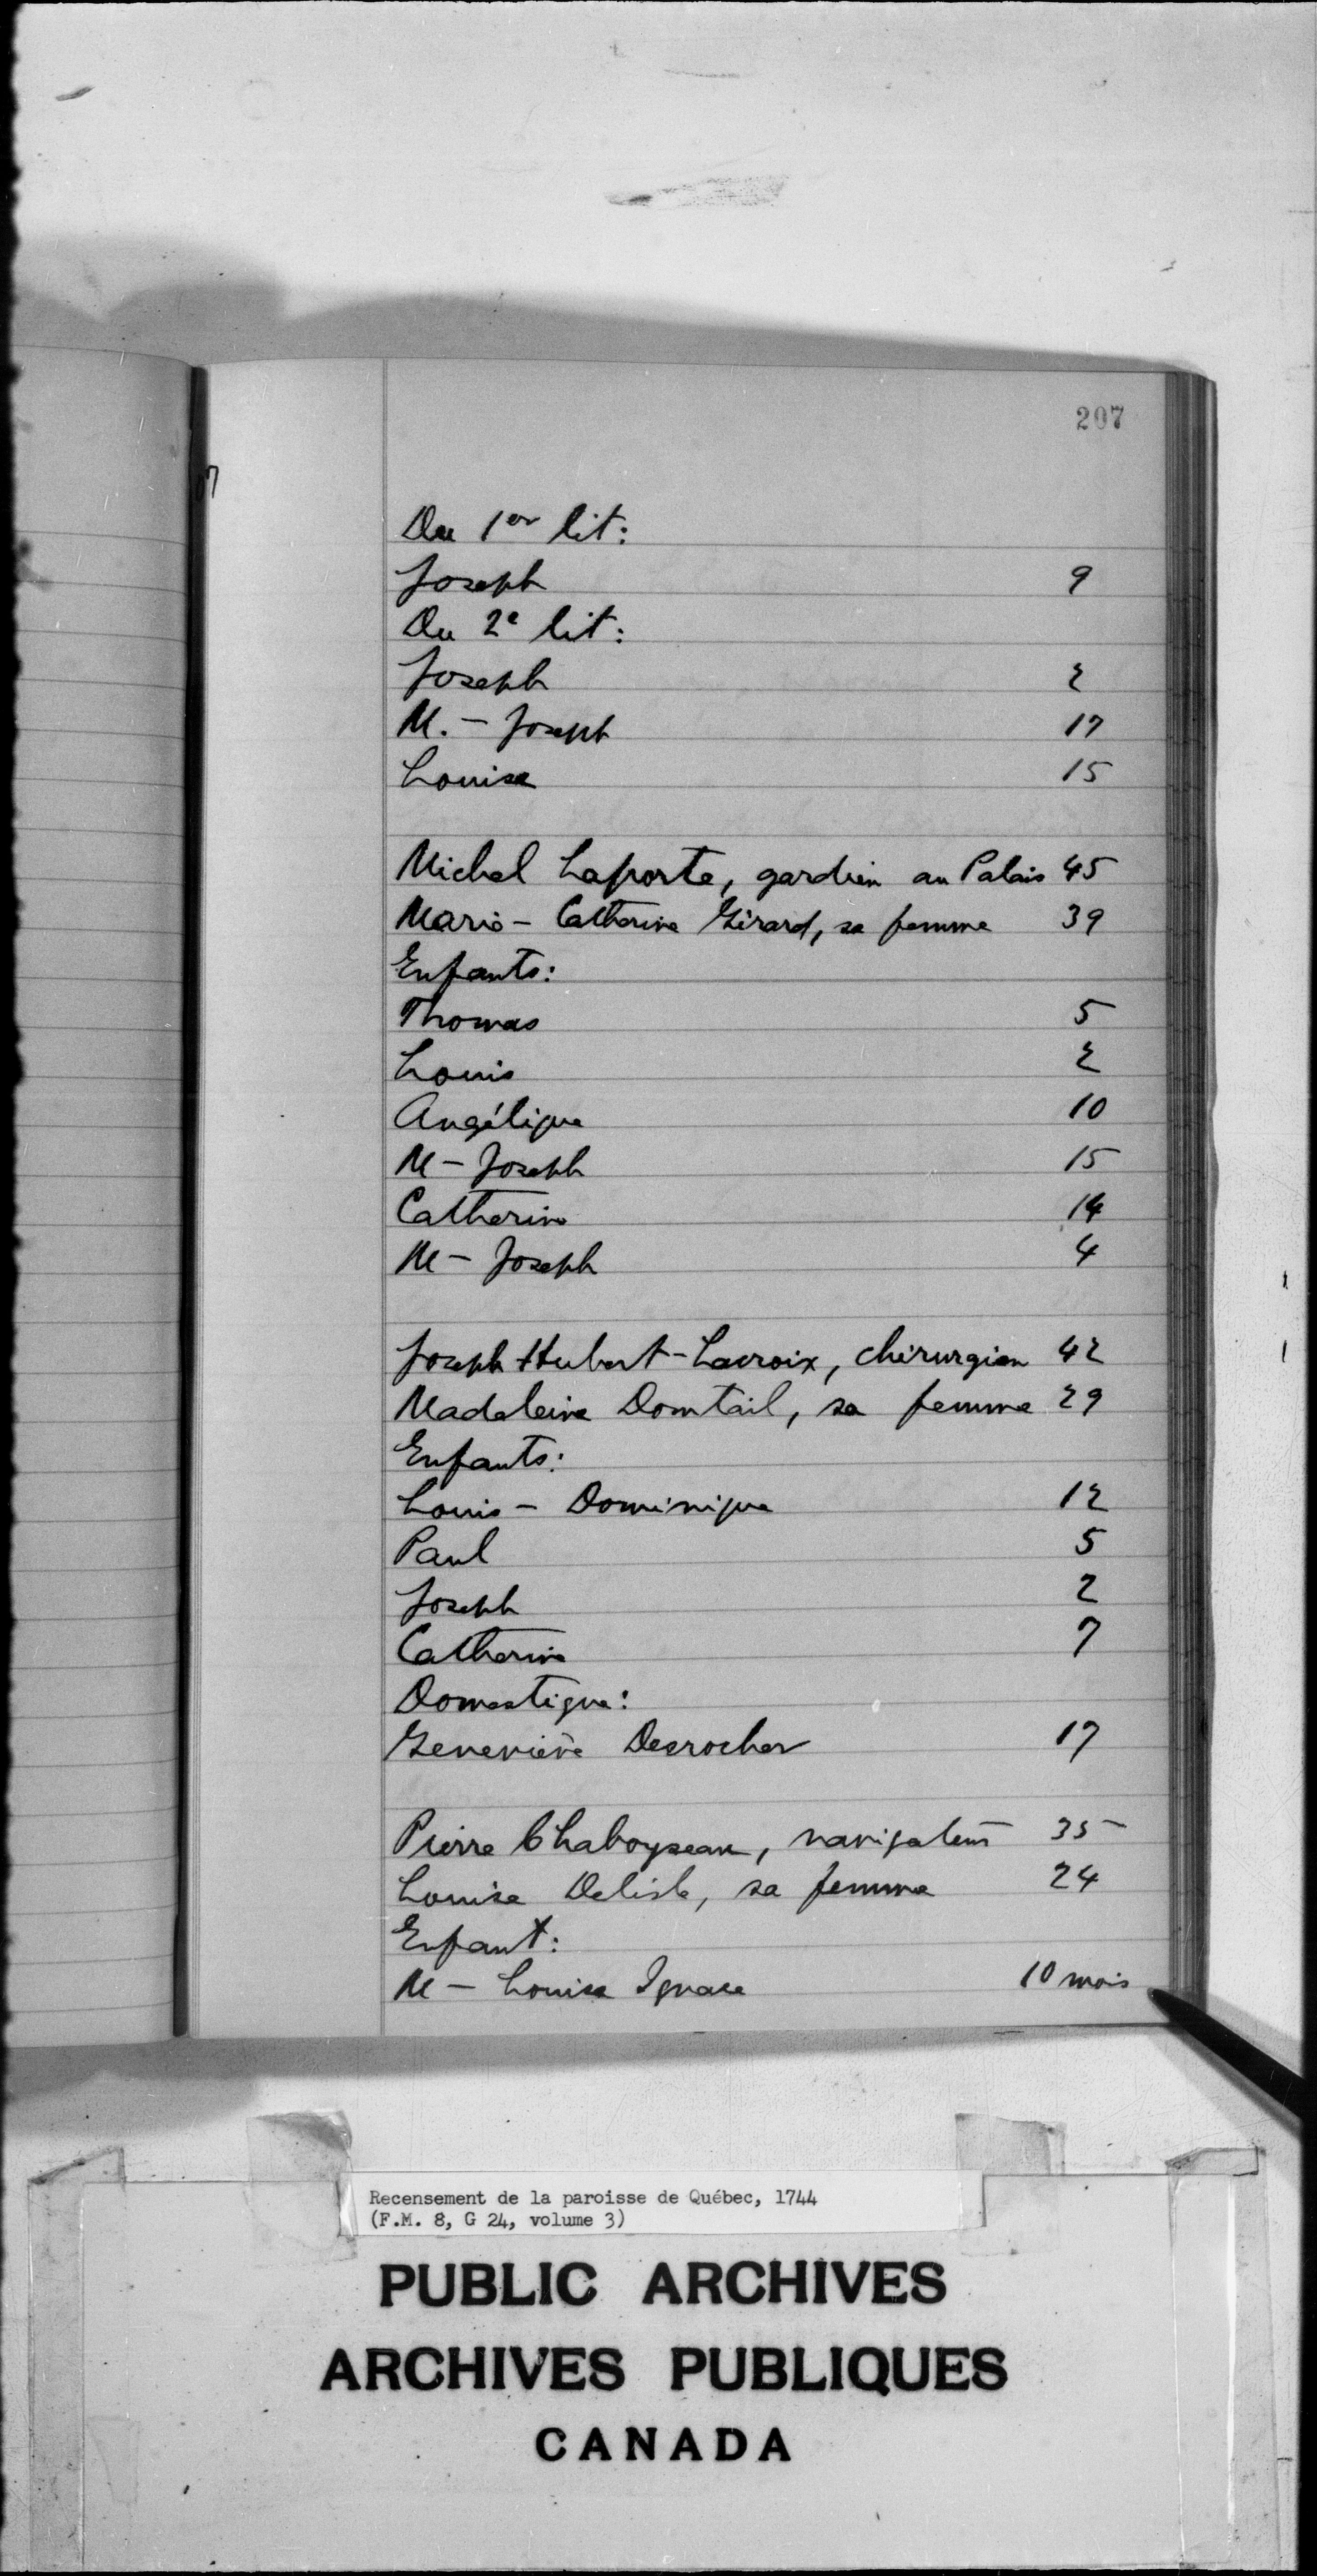 207
Du 1er lit:
Joseph 9
Du 2e lit:
Joseph 2
M. - Joseph 17
Louise 15
Michel Laporte, gardien au Palais 45
Marie - Catherine Girard, sa femme 39
Enfants:
Thomas 5
Louis 2
Angélique 10
M - Joseph 15
Catherine 14
M - Joseph 4
Joseph Hubert-Lacroix, chirurgien 42
Madeleine Domtail, sa femme 29
Enfants:
Louis - Dominique 12
Paul 5
Joseph 2
Catherine 7
Domestique:
Geneviève Desrocher 17
Pierre Chaboyseau, navigateur 35
Louise Delisle, sa femme 24
Enfant:
M - Louise Ignace 10 mois
Recensement de la paroisse de Québec, 1744
(F.M. 8, G 24, volume 3)
PUBLIC ARCHIVES
ARCHIVES PUBLIQUES
CANADA